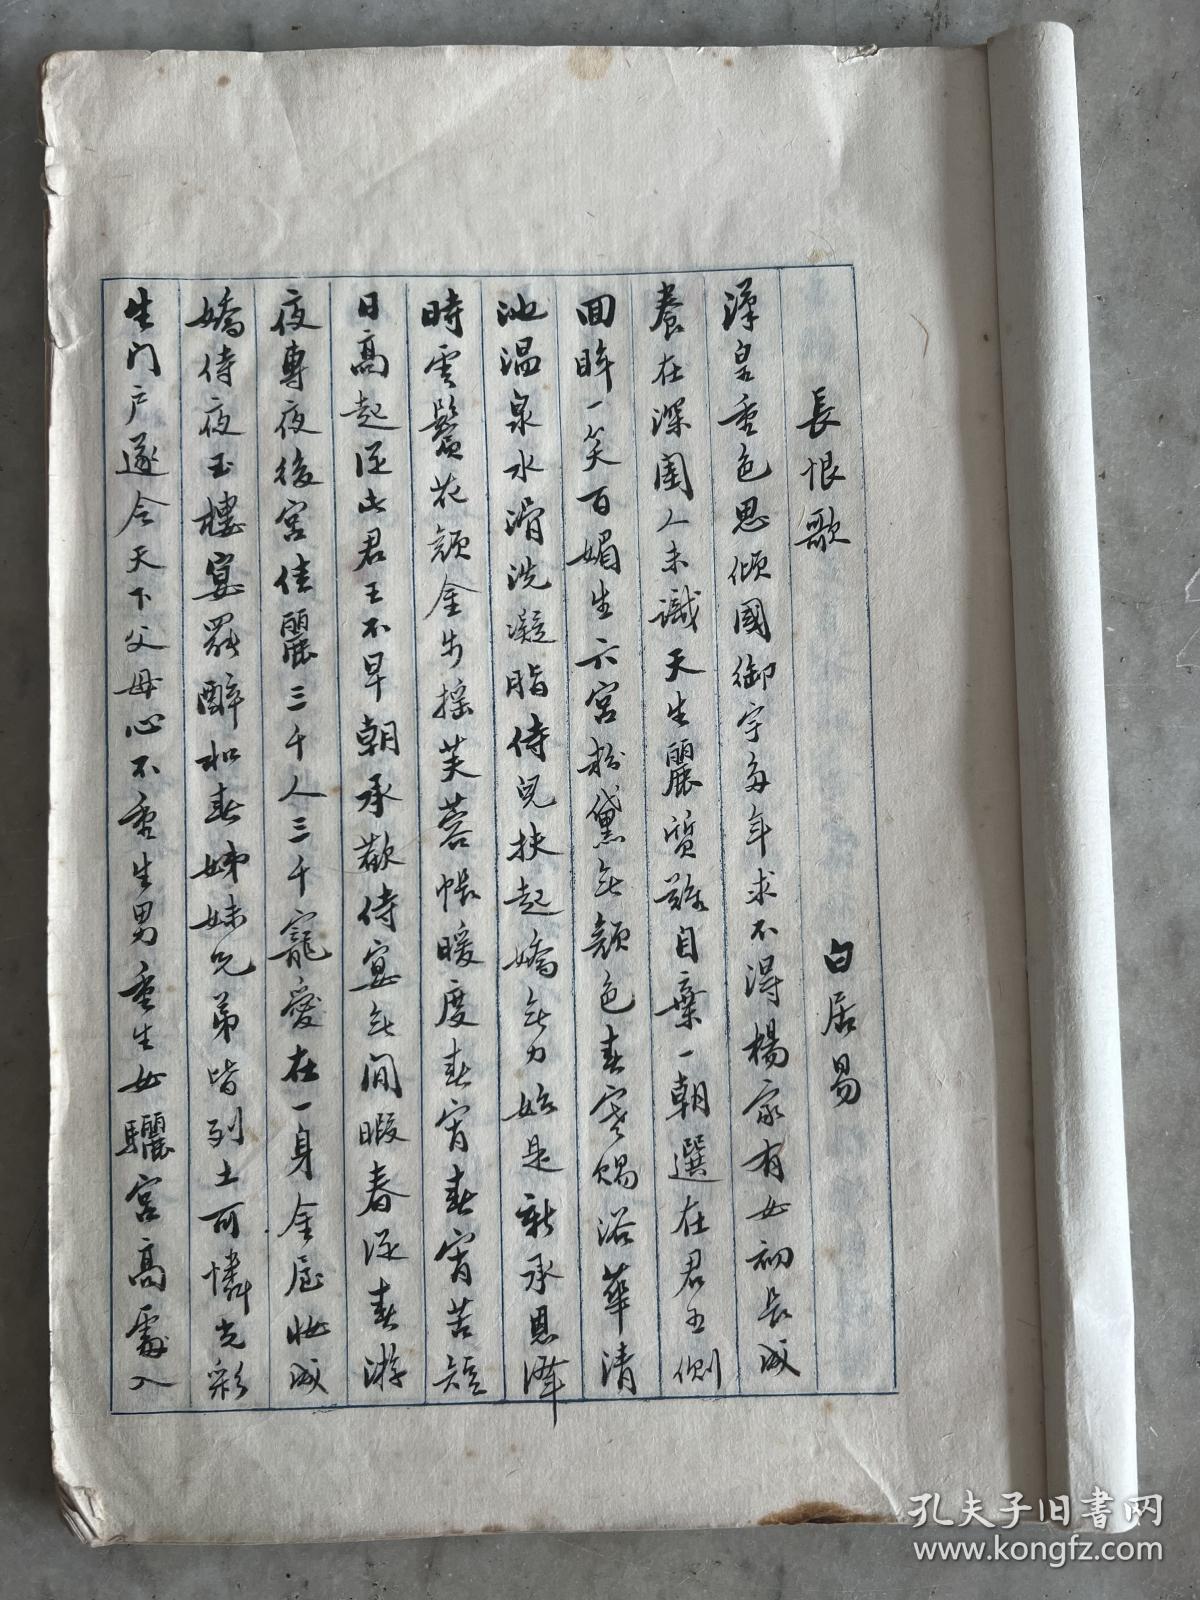 長恨歌 白居易
漢皇重色思傾國御宇多年求不得楊家有女初長成
養在深閨人未識天生麗質難自棄一朝選在君王側
回眸一笑百媚生六宮粉黛無顏色春寒賜浴華清
池温泉水滑洗凝脂侍兒扶起嬌無力始是新承恩澤
時雲鬢花顏金步搖芙蓉帳暖度春宵春宵苦短
日高起從此君王不早朝承歡侍宴無閒暇春從春游
夜專夜後宮佳麗三千人三千寵愛在一身金屋妝成
嬌侍夜玉樓宴罷醉和春姊妹兄弟皆列土可憐光彩
生门户遂令天下父母心不重生男重生女驪宮高處入
孔夫子旧書网
www.kongfz.com